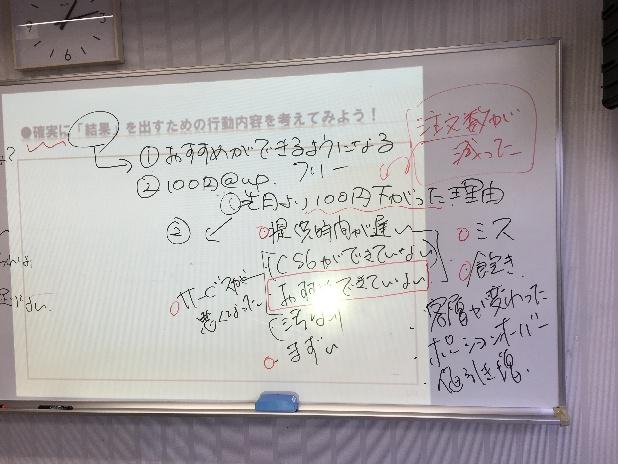 ●確実に「結果」を出すための行動内容を考えてみよう!
注文数が
減った
①おすすめができるようになる
②100円@up. フリー
先月より100円下がった理由
②
提供時間が遅い
ができていない
おすすめできていない
サービスが
悪くなった
まずい
ミス
飽き
・客層が変わった
・ポーションオーバー
・値引き増